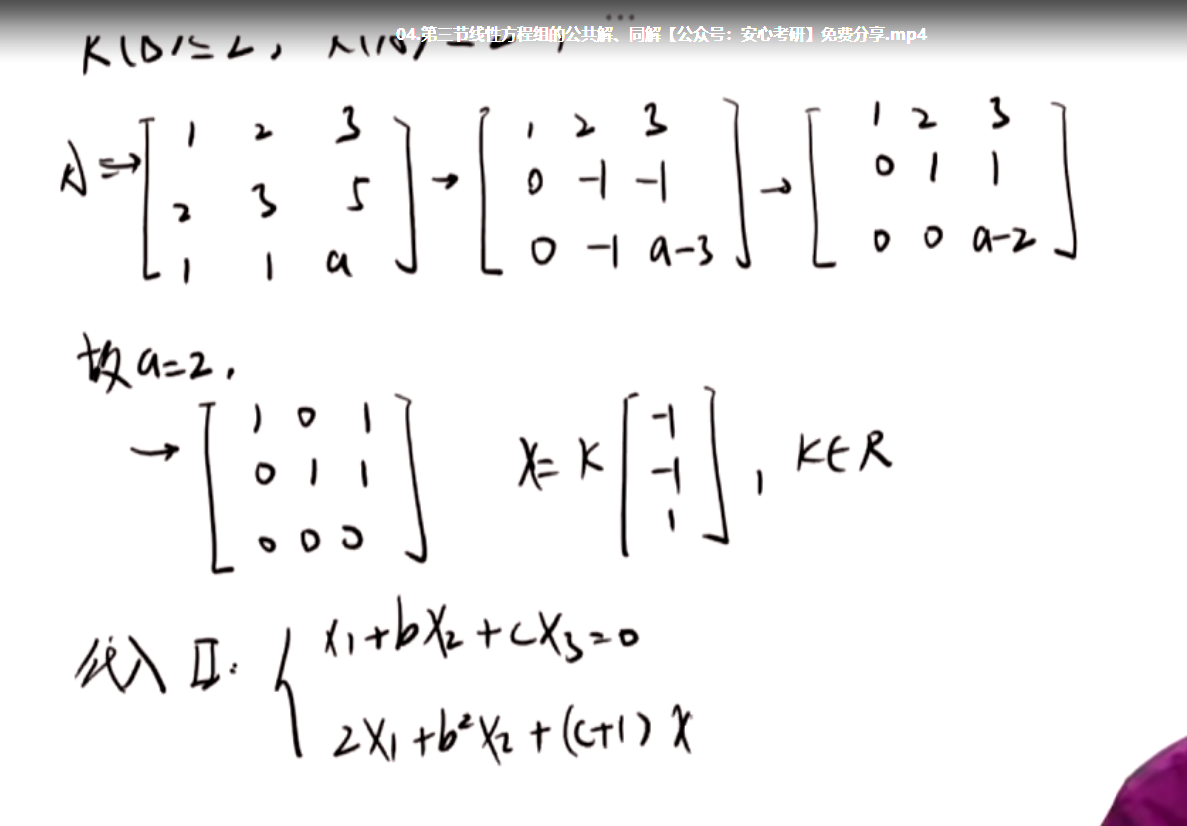 04.第三节线性方程组的公共解、同解【公众号：安心考研】免费分享.mp4
A → [1 2 3; 2 3 5; 1 1 a] → [1 2 3; 0 -1 -1; 0 -1 a-3] → [1 2 3; 0 1 1; 0 0 a-2]
故 a=2,
→ [1 0 1; 0 1 1; 0 0 0] X= K [-1; -1; 1], K∈R
代入 Ⅱ: { x₁+bx₂+cx₃=0
2x₁+b²x₂+(c+1)x